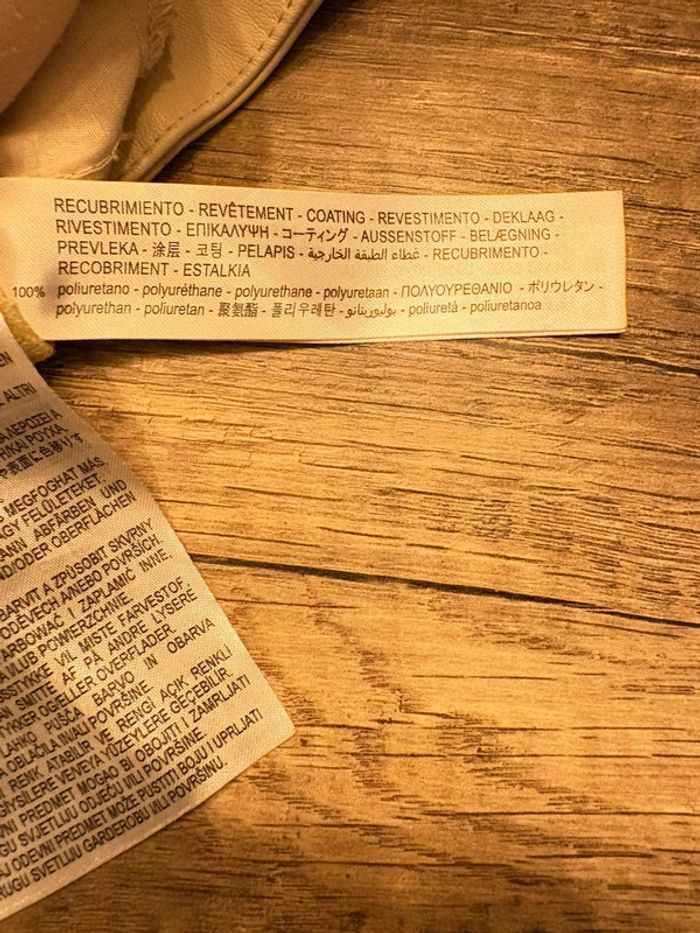 RECUBRIMIENTO - REVÊTEMENT - COATING - REVESTIMENTO - DEKLAAG -
RIVESTIMENTO - ΕΠΙΚΑΛΥΨΗ - コーティング - AUSSENSTOFF - BELÆGNING -
PREVLEKA - 涂层 - 코팅 - PELAPIS - غطاء الطبقة الخارجية - RECUBRIMENTO -
RECOBRIMENT - ESTALKIA
100% poliuretano - polyuréthane - polyurethane - polyuretaan - ΠΟΛΥΟΥΡΕΘΑΝΙΟ - ポリウレタン -
polyurethan - poliuretan - 聚氨酯 - 폴리우레탄 - بوليوريثانو - poliuretà - poliuretanoa
EN
ALTRI
ΡΙΚΑΙ ΡΟΥΧΑ.
や表面に色移りす
MEGFOGHAT MÁS,
AGY FELÜLETEKET.
ANN ABFÄRBEN UND
ND/ODER OBERFLÄCHEN
BARVIT A ZPŮSOBIT SKVRNY
ODĚVECH A/NEBO POVRŠÍCH.
ARBOWAĆ I ZAPLAMIĆ INNE
LUB POWIERZCHNIE.
STYKKE VIL MISTE FARVESTOF,
SMITTE AF PÅ ANDRE LYSERE
YKKER OG/ELLER OVERFLADER.
LAHKO PUŠČA BARVO IN OBARVA
OBLAČILA IN/ALI POVRŠINE.
RENK ATABİLİR VE RENGİ AÇIK RENKLİ
GİYSİLERE VE/VEYA YÜZEYLERE GEÇEBİLİR.
VNI PREDMET MOGAO BI OBOJITI I ZAMRLJATI
UGU SVJETLIJU ODJEĆU I/ILI POVRŠINE.
AJ ODEVNI PREDMET MOŽE PUSTITI BOJU I UPRLJATI
RUGU SVETLIJU GARDEROBU I/ILI POVRŠINU.